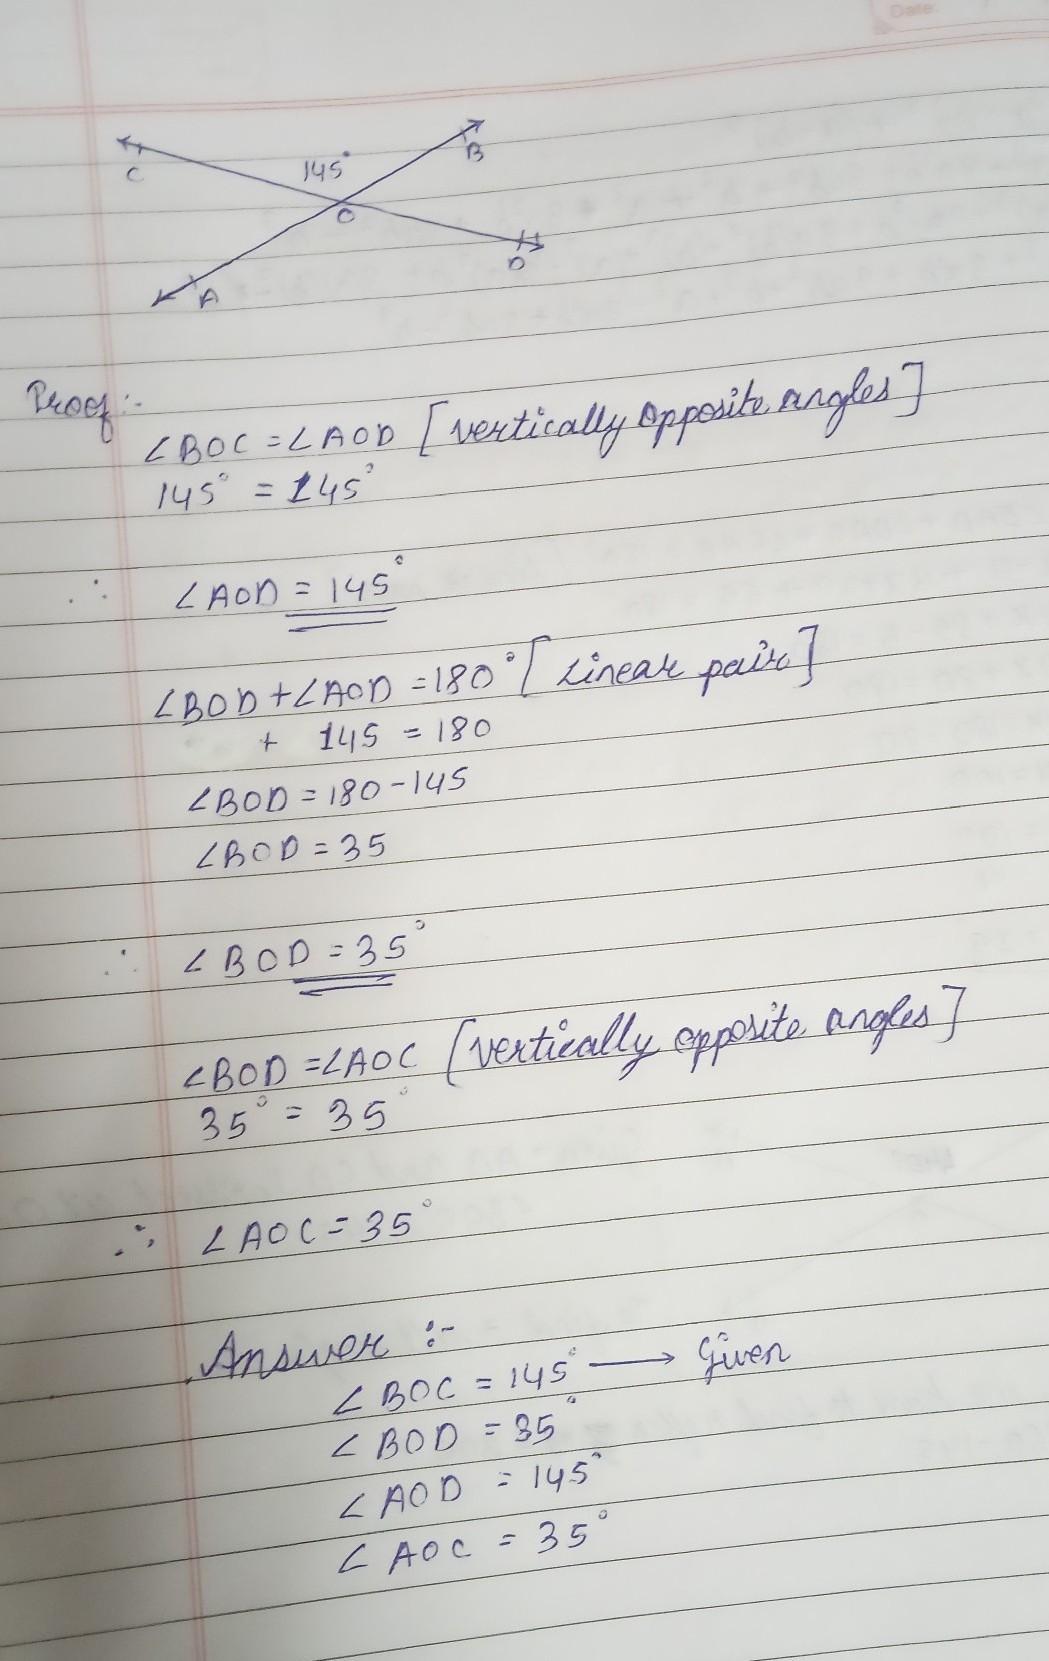 Date:
145°
C
B
O
D
A
Proof:-
∠BOC = ∠AOD [vertically opposite angles]
145° = 145°
∴ ∠AOD = 145°
∠BOD + ∠AOD = 180° [Linear pair]
+ 145 = 180
∠BOD = 180 - 145
∠BOD = 35
∴ ∠BOD = 35°
∠BOD = ∠AOC [vertically opposite angles]
35° = 35°
∴ ∠AOC = 35°
Answer :-
∠BOC = 145° → Given
∠BOD = 35°
∠AOD = 145°
∠AOC = 35°